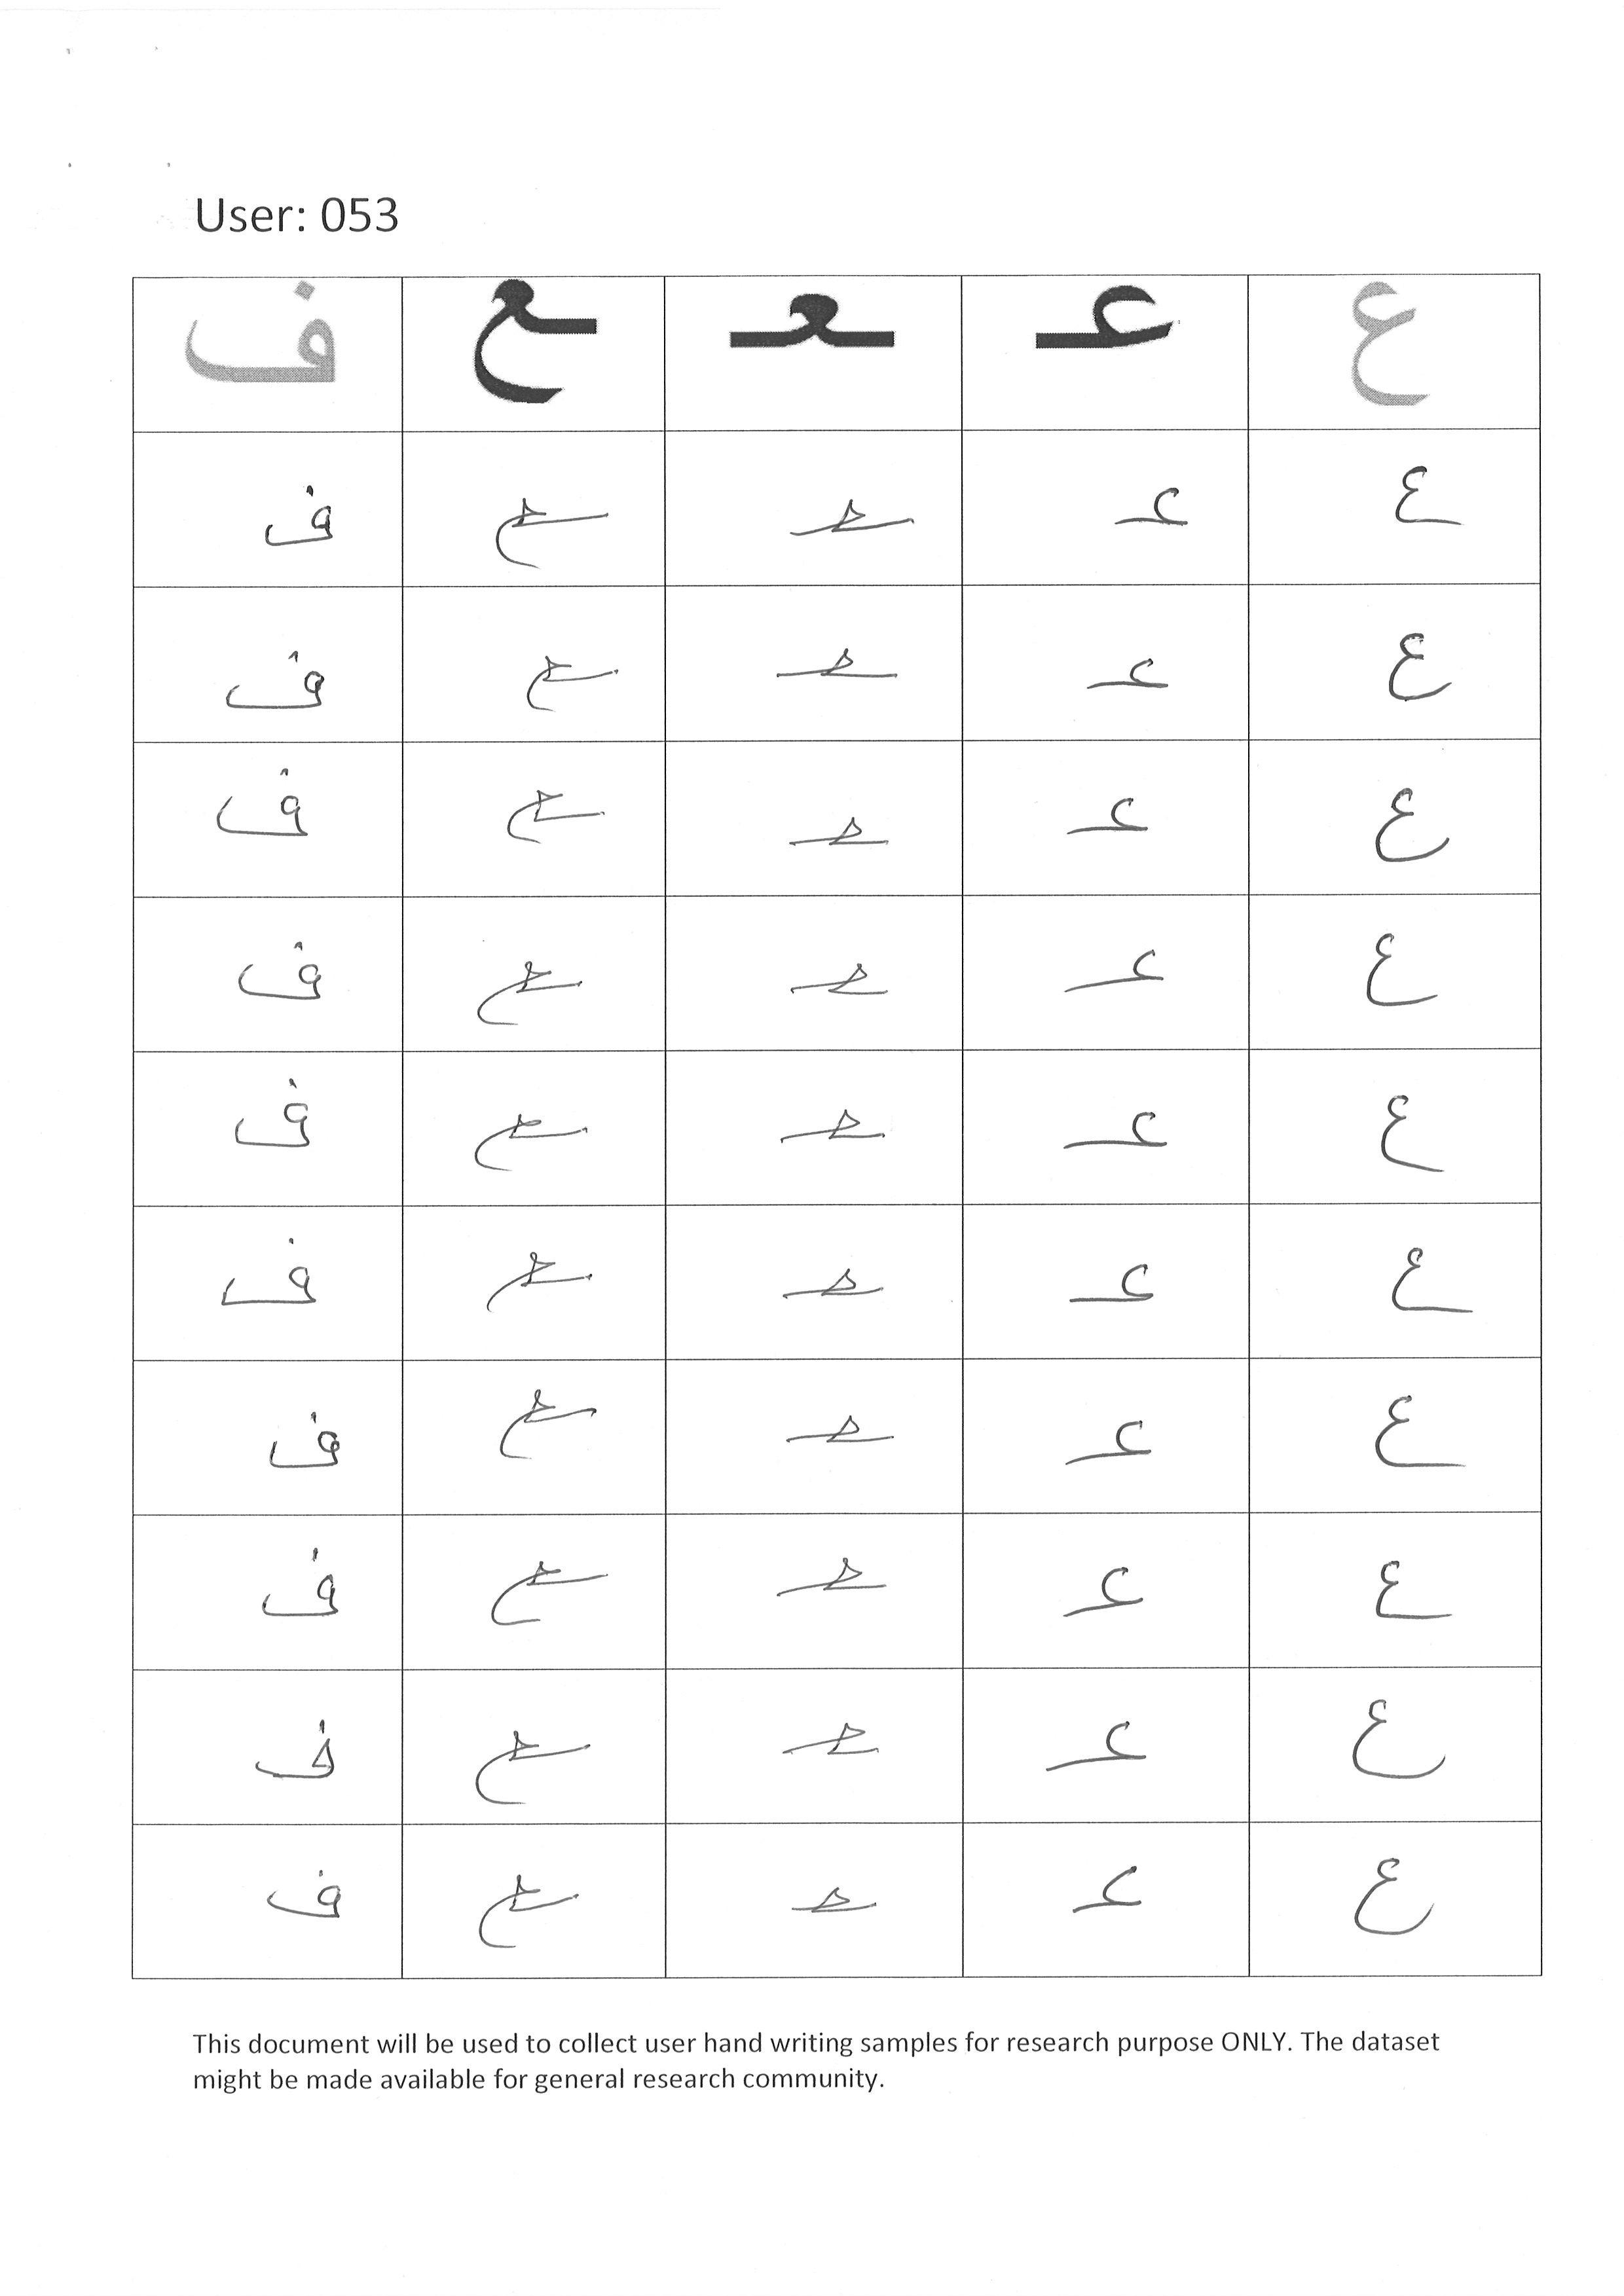 User: 053
ع عـ ـعـ ـع ف
ع عـ ـعـ ـع ف
ع عـ ـعـ ـع ف
ع عـ ـعـ ـع ف
ع عـ ـعـ ـع ف
ع عـ ـعـ ـع ف
ع عـ ـعـ ـع ف
ع عـ ـعـ ـع ف
ع عـ ـعـ ـع ف
ع عـ ـعـ ـع ف
ع عـ ـعـ ـع ف
This document will be used to collect user hand writing samples for research purpose ONLY. The dataset
might be made available for general research community.